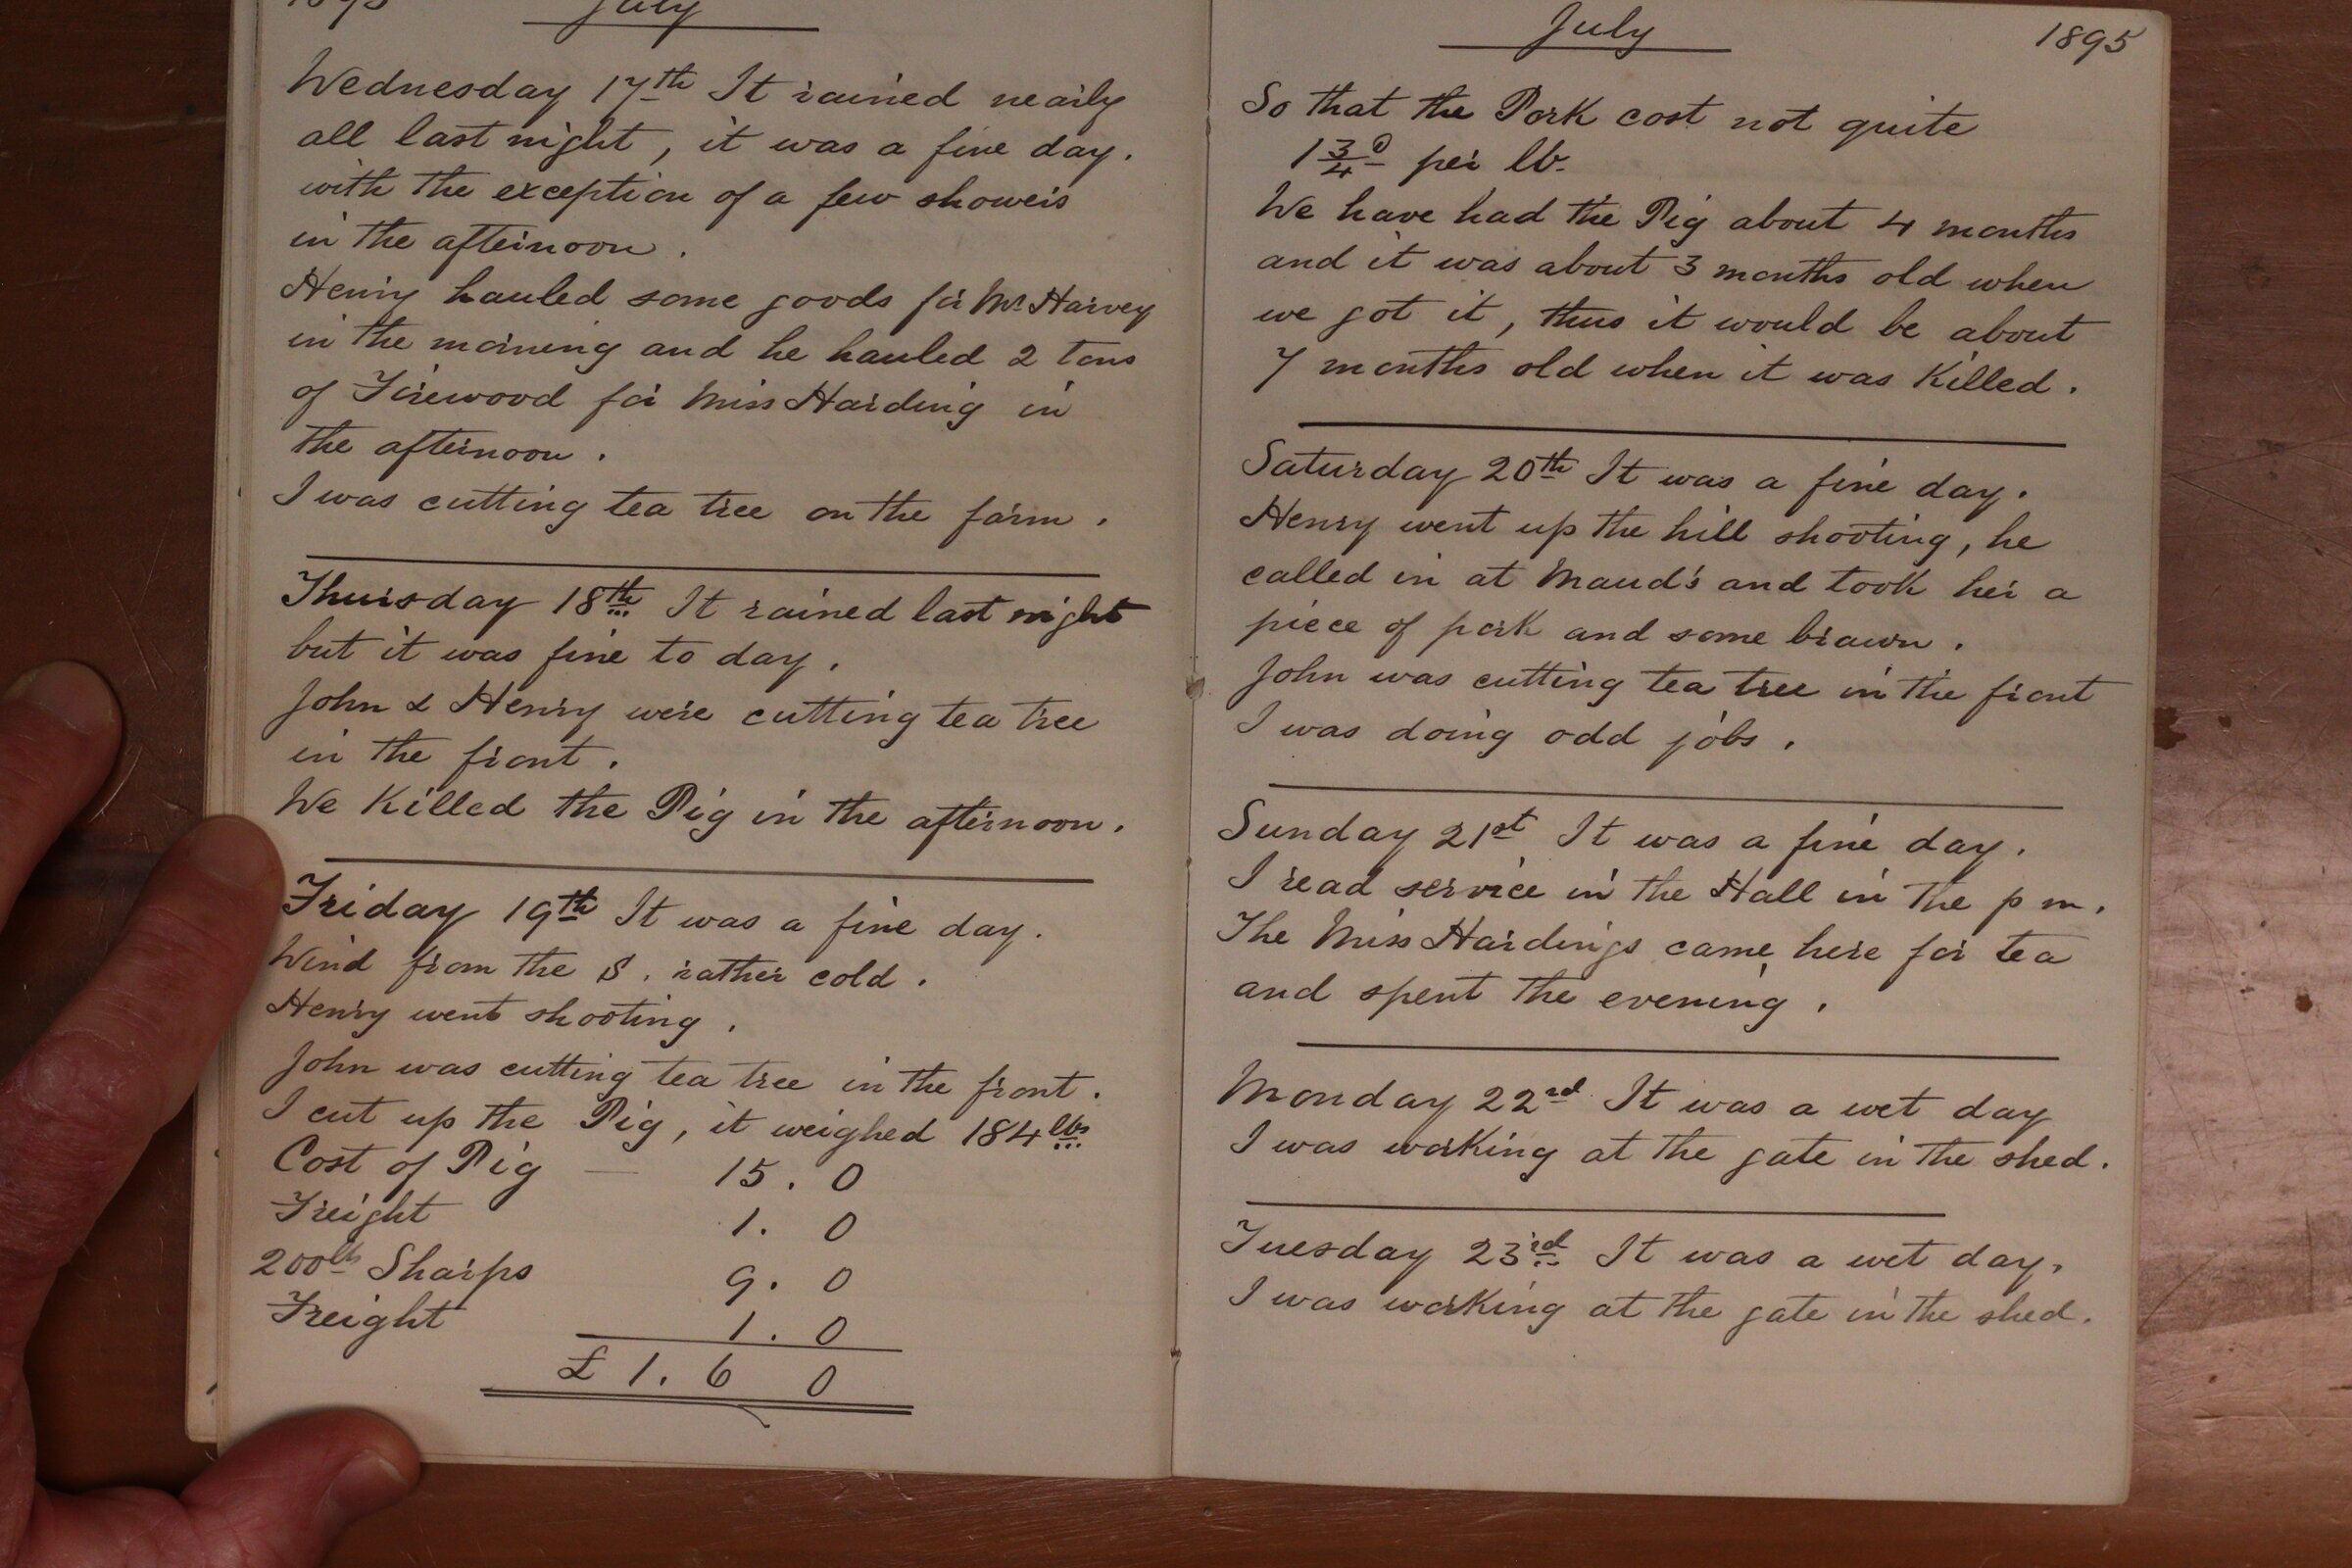 1895 July
Wednesday 17th It rained nearly
all last night, it was a fine day.
with the exception of a few showers
in the afternoon.
Henry hauled some goods for Mr Harvey
in the morning and he hauled 2 tons
of Firewood for Miss Harding in
the afternoon.
I was cutting tea tree on the farm.
Thursday 18th It rained last night
but it was fine to day.
John & Henry were cutting tea tree
in the front.
We Killed the Pig in the afternoon.
Friday 19th It was a fine day.
Wind from the S. rather cold.
Henry went shooting.
John was cutting tea tree in the front.
I cut up the Pig, it weighed 184 lbs
Cost of Pig — 15. 0
Freight 1. 0
200lb Sharps 9. 0
Freight 1. 0
£ 1. 6 0
July 1895
So that the Pork cost not quite
1 3/4 D per lb.
We have had the Pig about 4 months
and it was about 3 months old when
we got it, thus it would be about
7 months old when it was Killed.
Saturday 20th It was a fine day.
Henry went up the hill shooting, he
called in at Maud's and took her a
piece of pork and some brawn.
John was cutting tea tree in the front
I was doing odd jobs.
Sunday 21st It was a fine day.
I read service in the Hall in the p m.
The Miss Hardings came here for tea
and spent the evening.
Monday 22nd It was a wet day
I was working at the gate in the shed.
Tuesday 23rd It was a wet day.
I was working at the gate in the shed.